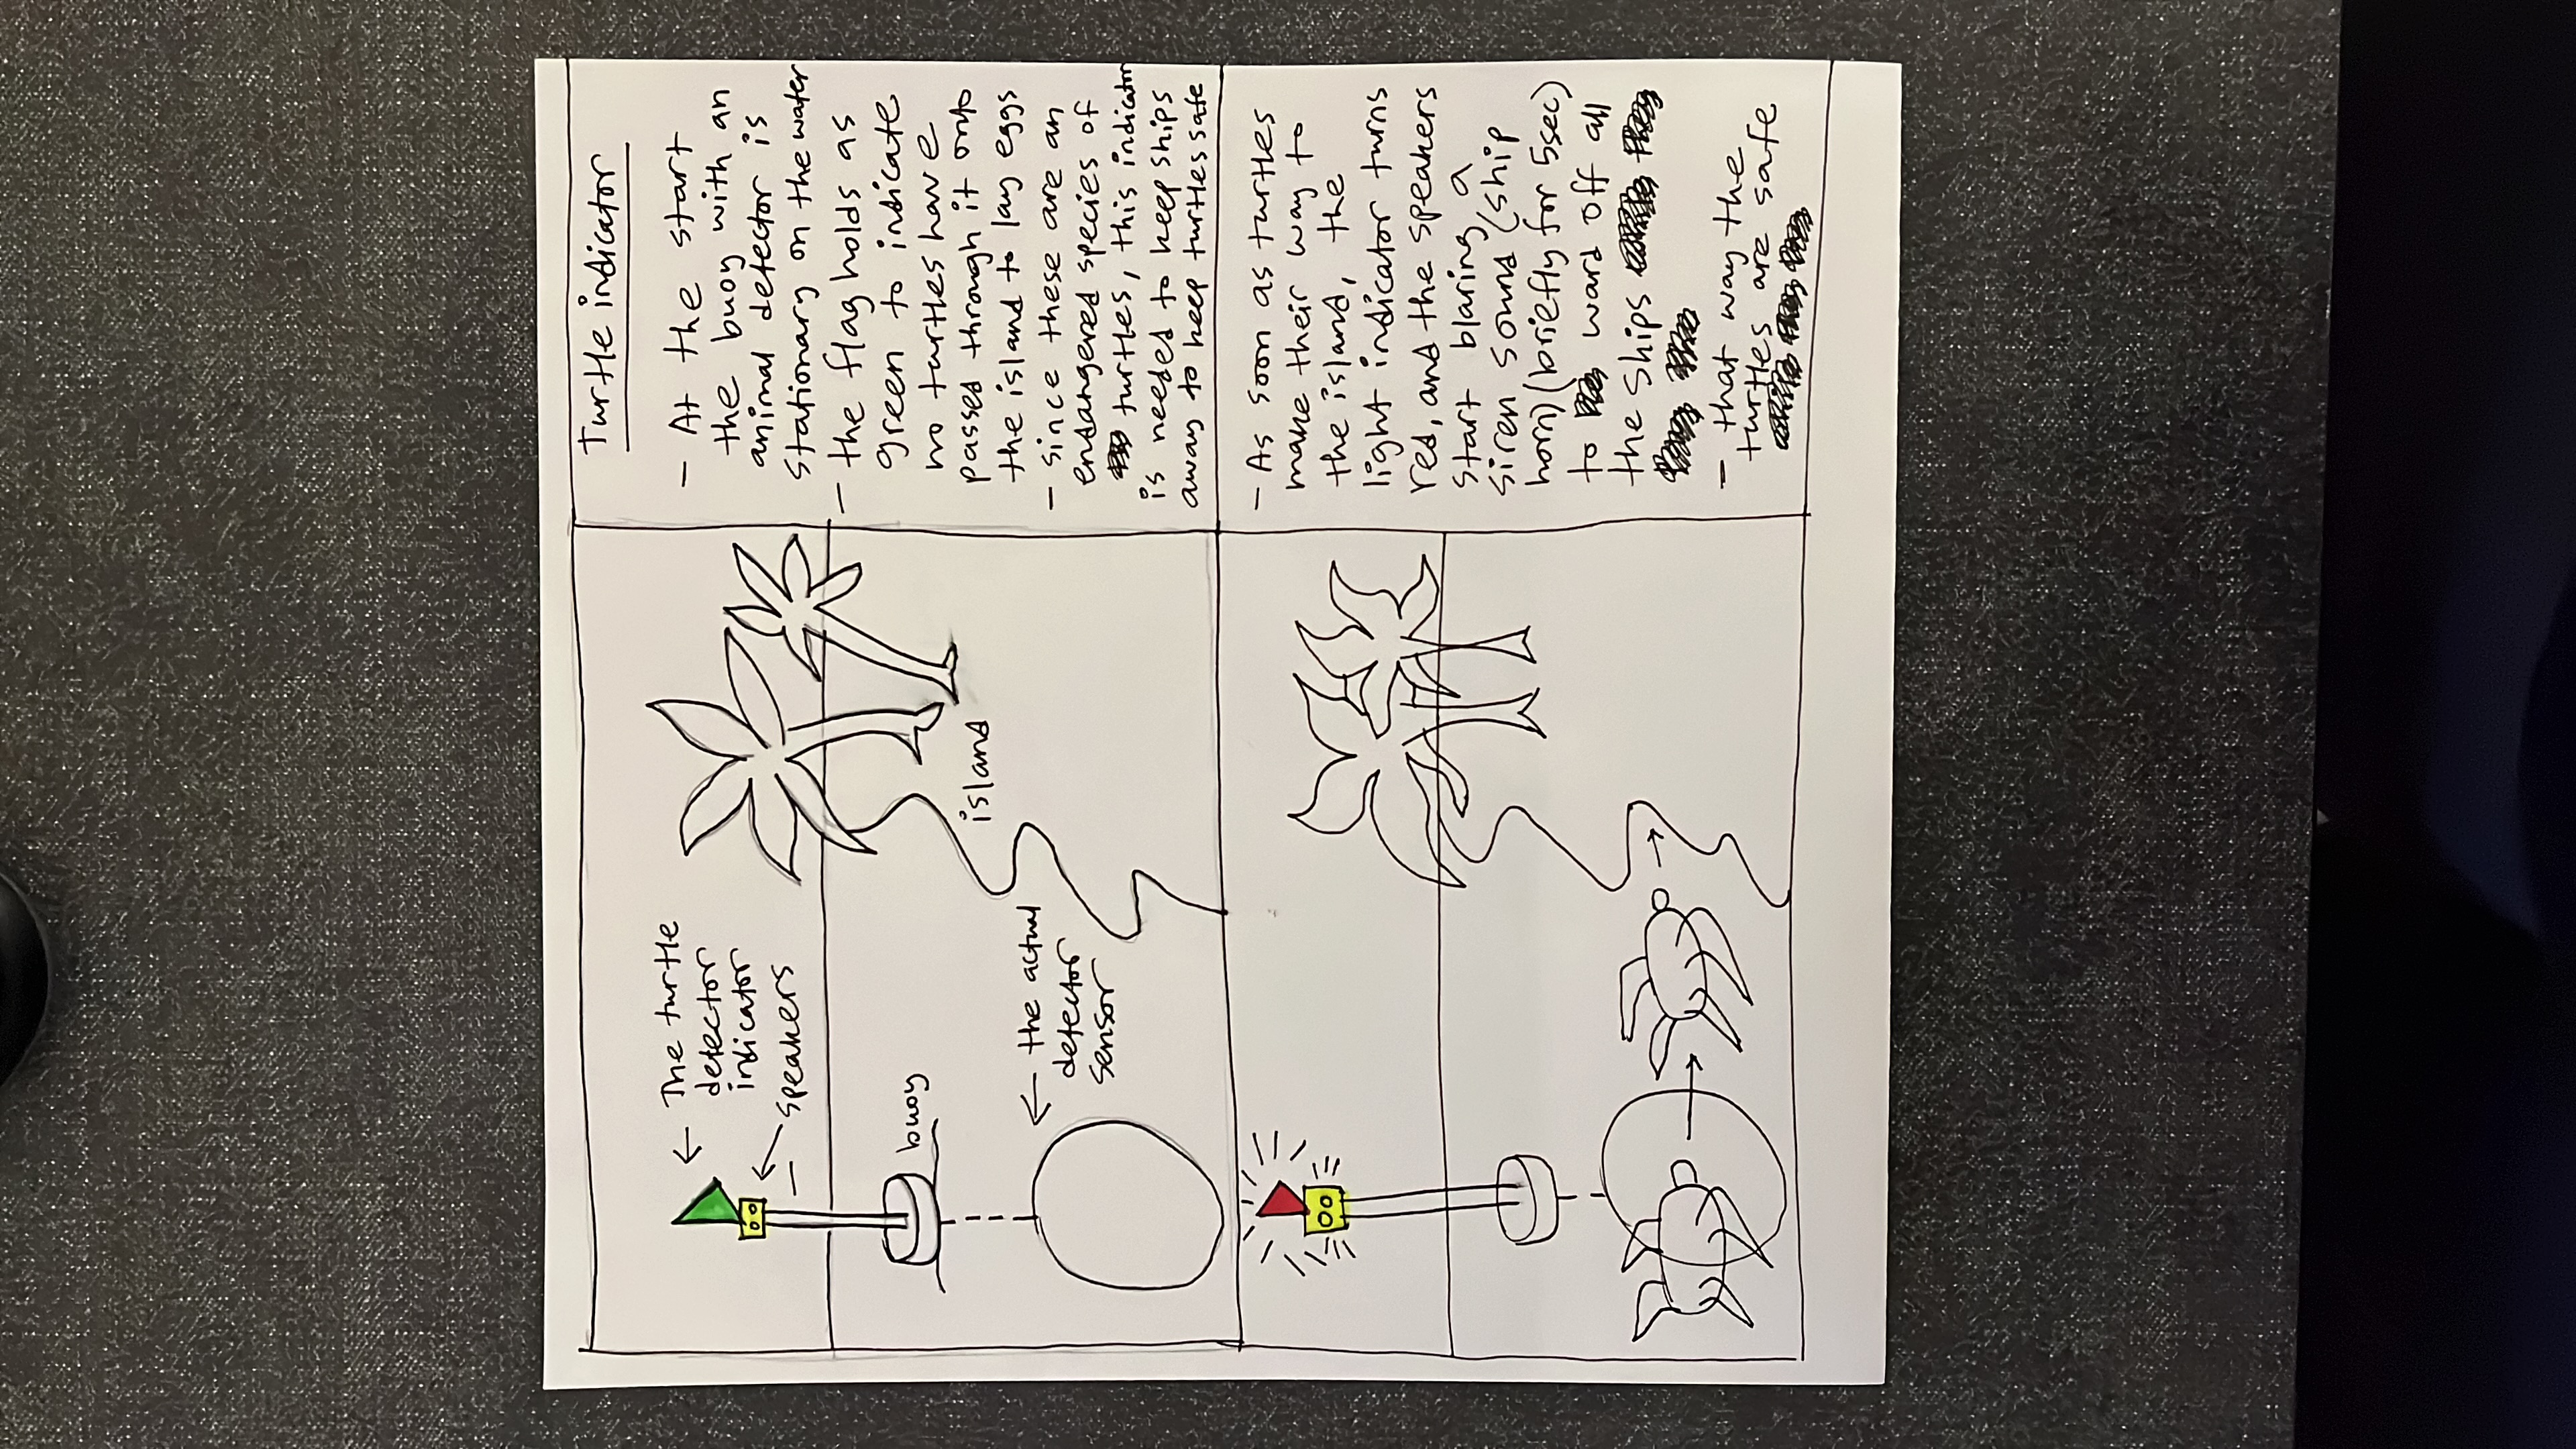 Turtle indicator
The turtle
detector
indicator
speakers
buoy
island
the actual
detector
sensor
- At the start
the buoy with an
animal detector is
stationary on the water
- the flag holds as
green to indicate
no turtles have
passed through it onto
the island to lay eggs
- since these are an
endangered species of
turtles, this indicator
is needed to keep ships
away to keep turtles safe
- As soon as turtles
make their way to
the island, the
light indicator turns
red, and the speakers
start blaring a
siren sound (ship
horn) (briefly for 5sec)
to ward off all
the ships
- that way the
turtles are safe